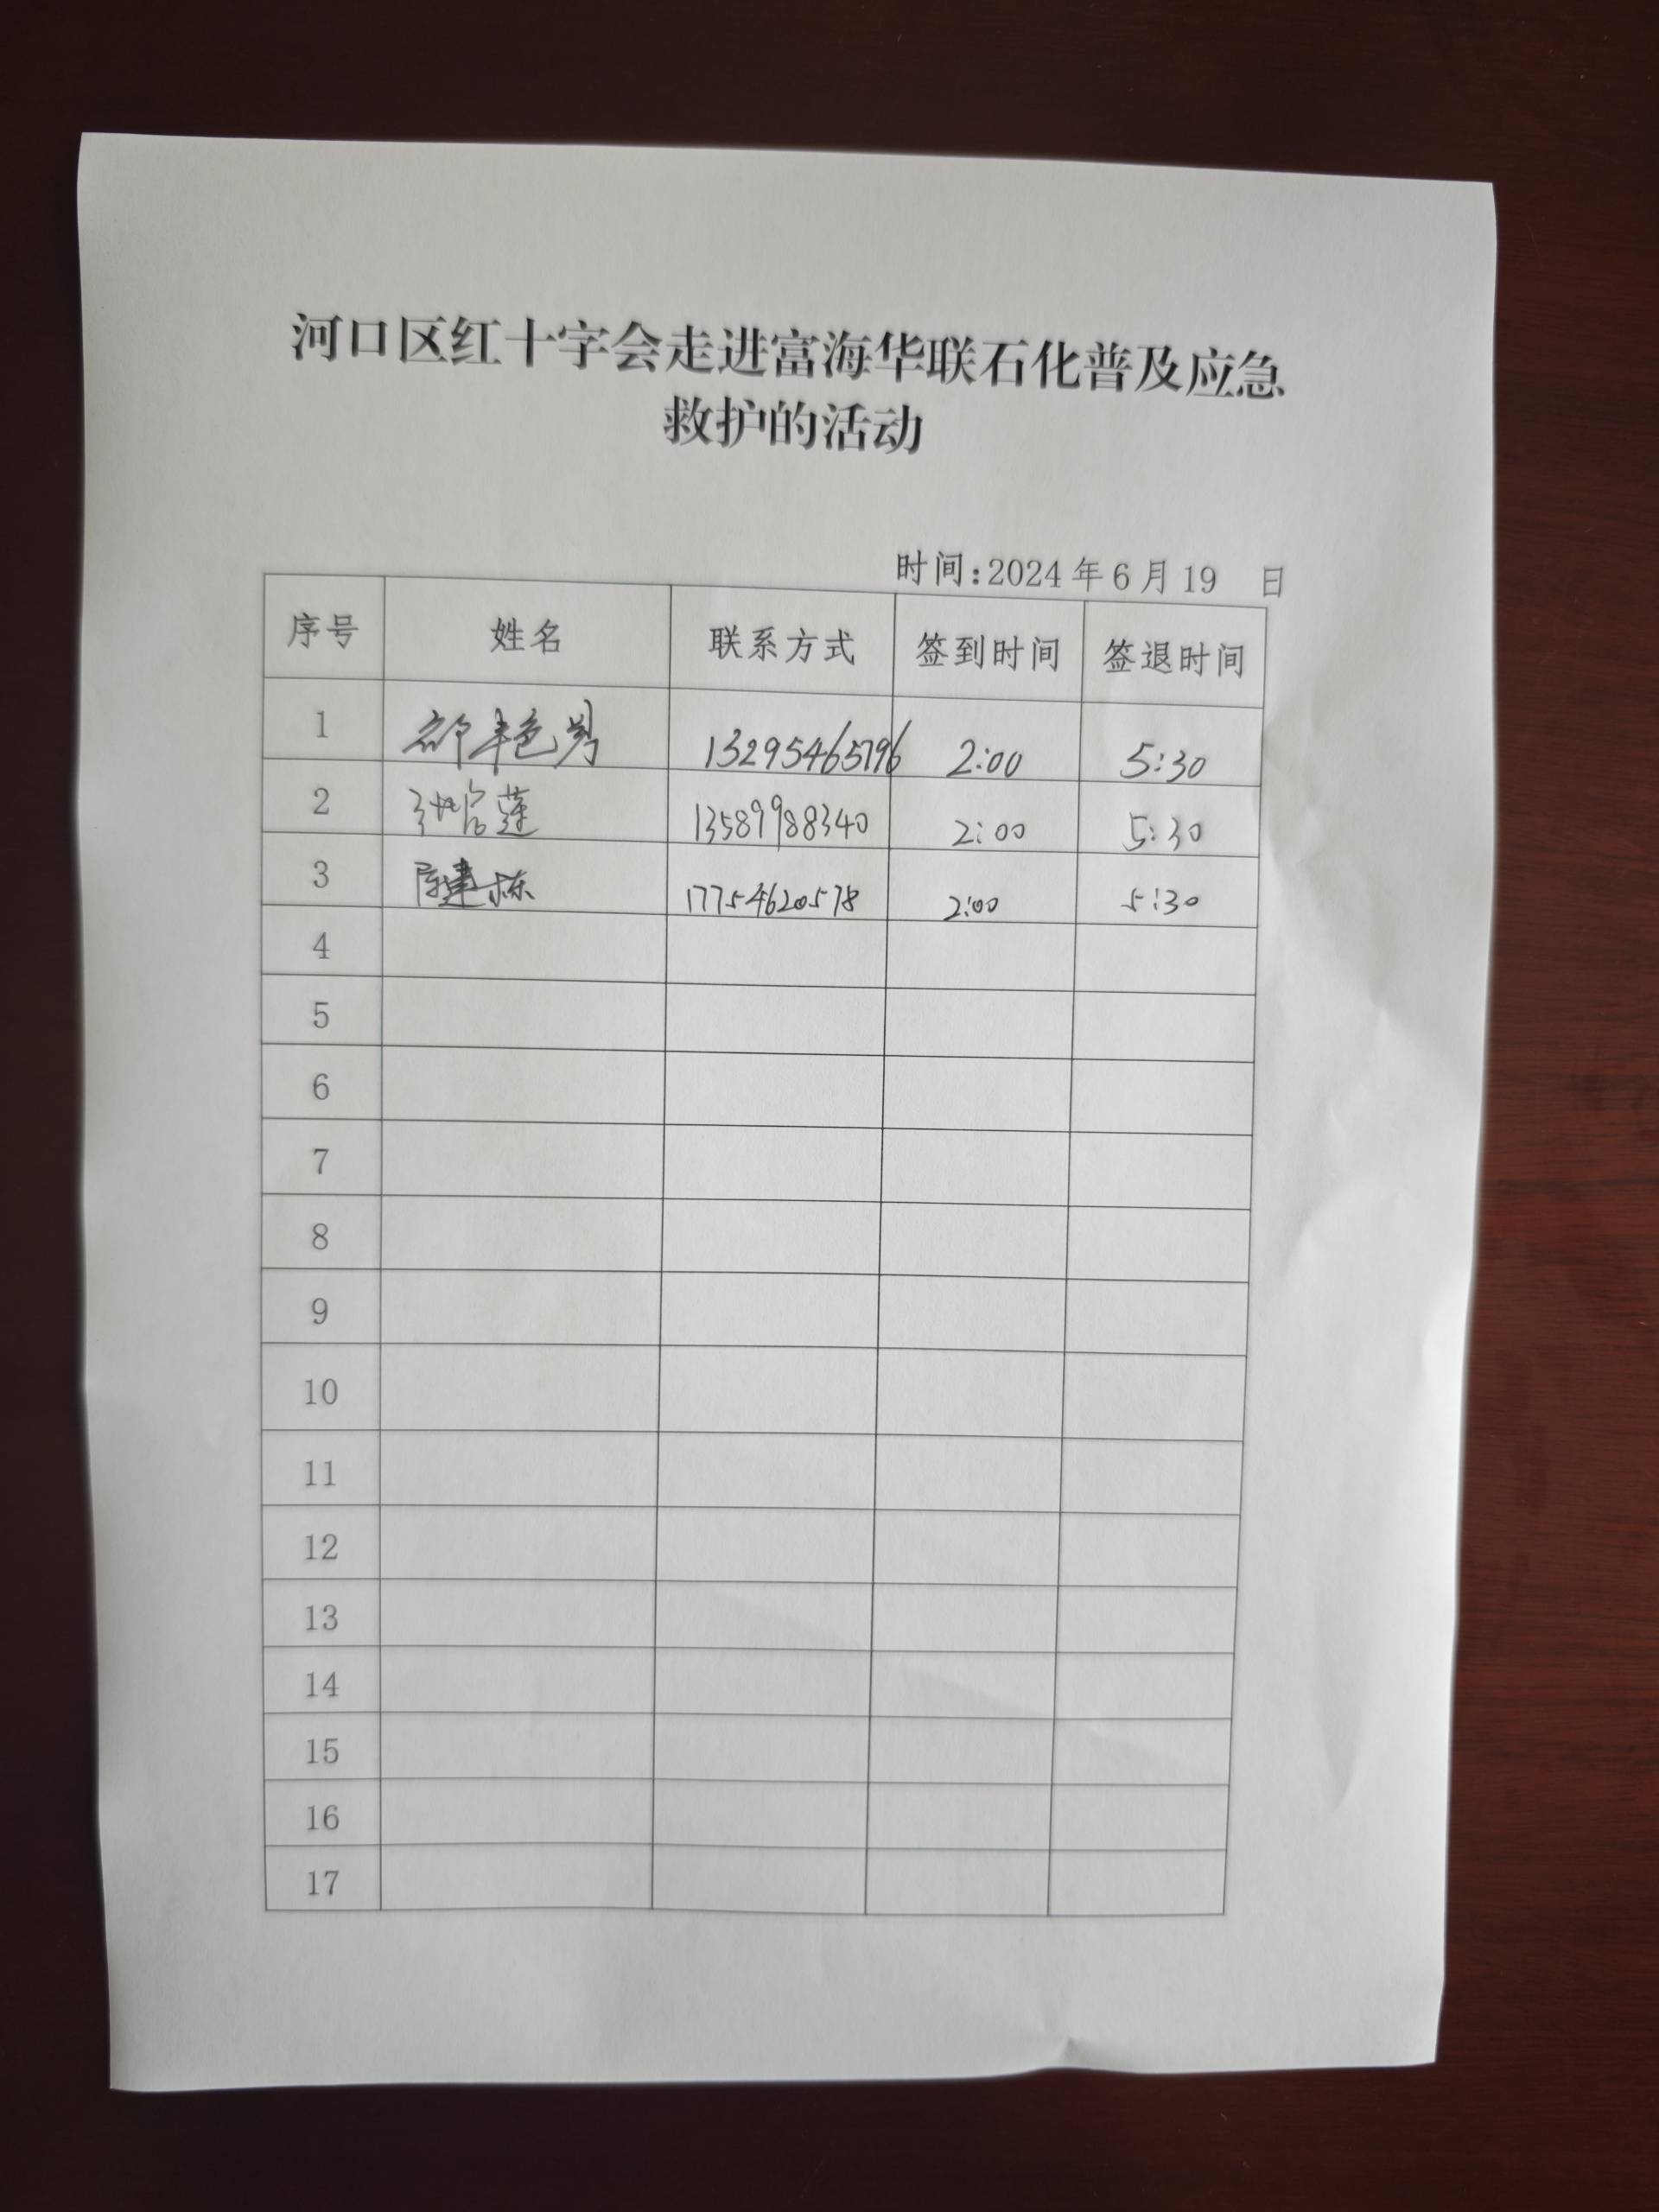 河口区红十字会走进富海华联石化普及应急
救护的活动
时间:2024年6月19 日
序号 姓名 联系方式 签到时间 签退时间
1 13295465796 2:00 5:30
2 13589988340 2:00 5:30
3 陈建栋 17754620578 2:00 5:30
4
5
6
7
8
9
10
11
12
13
14
15
16
17